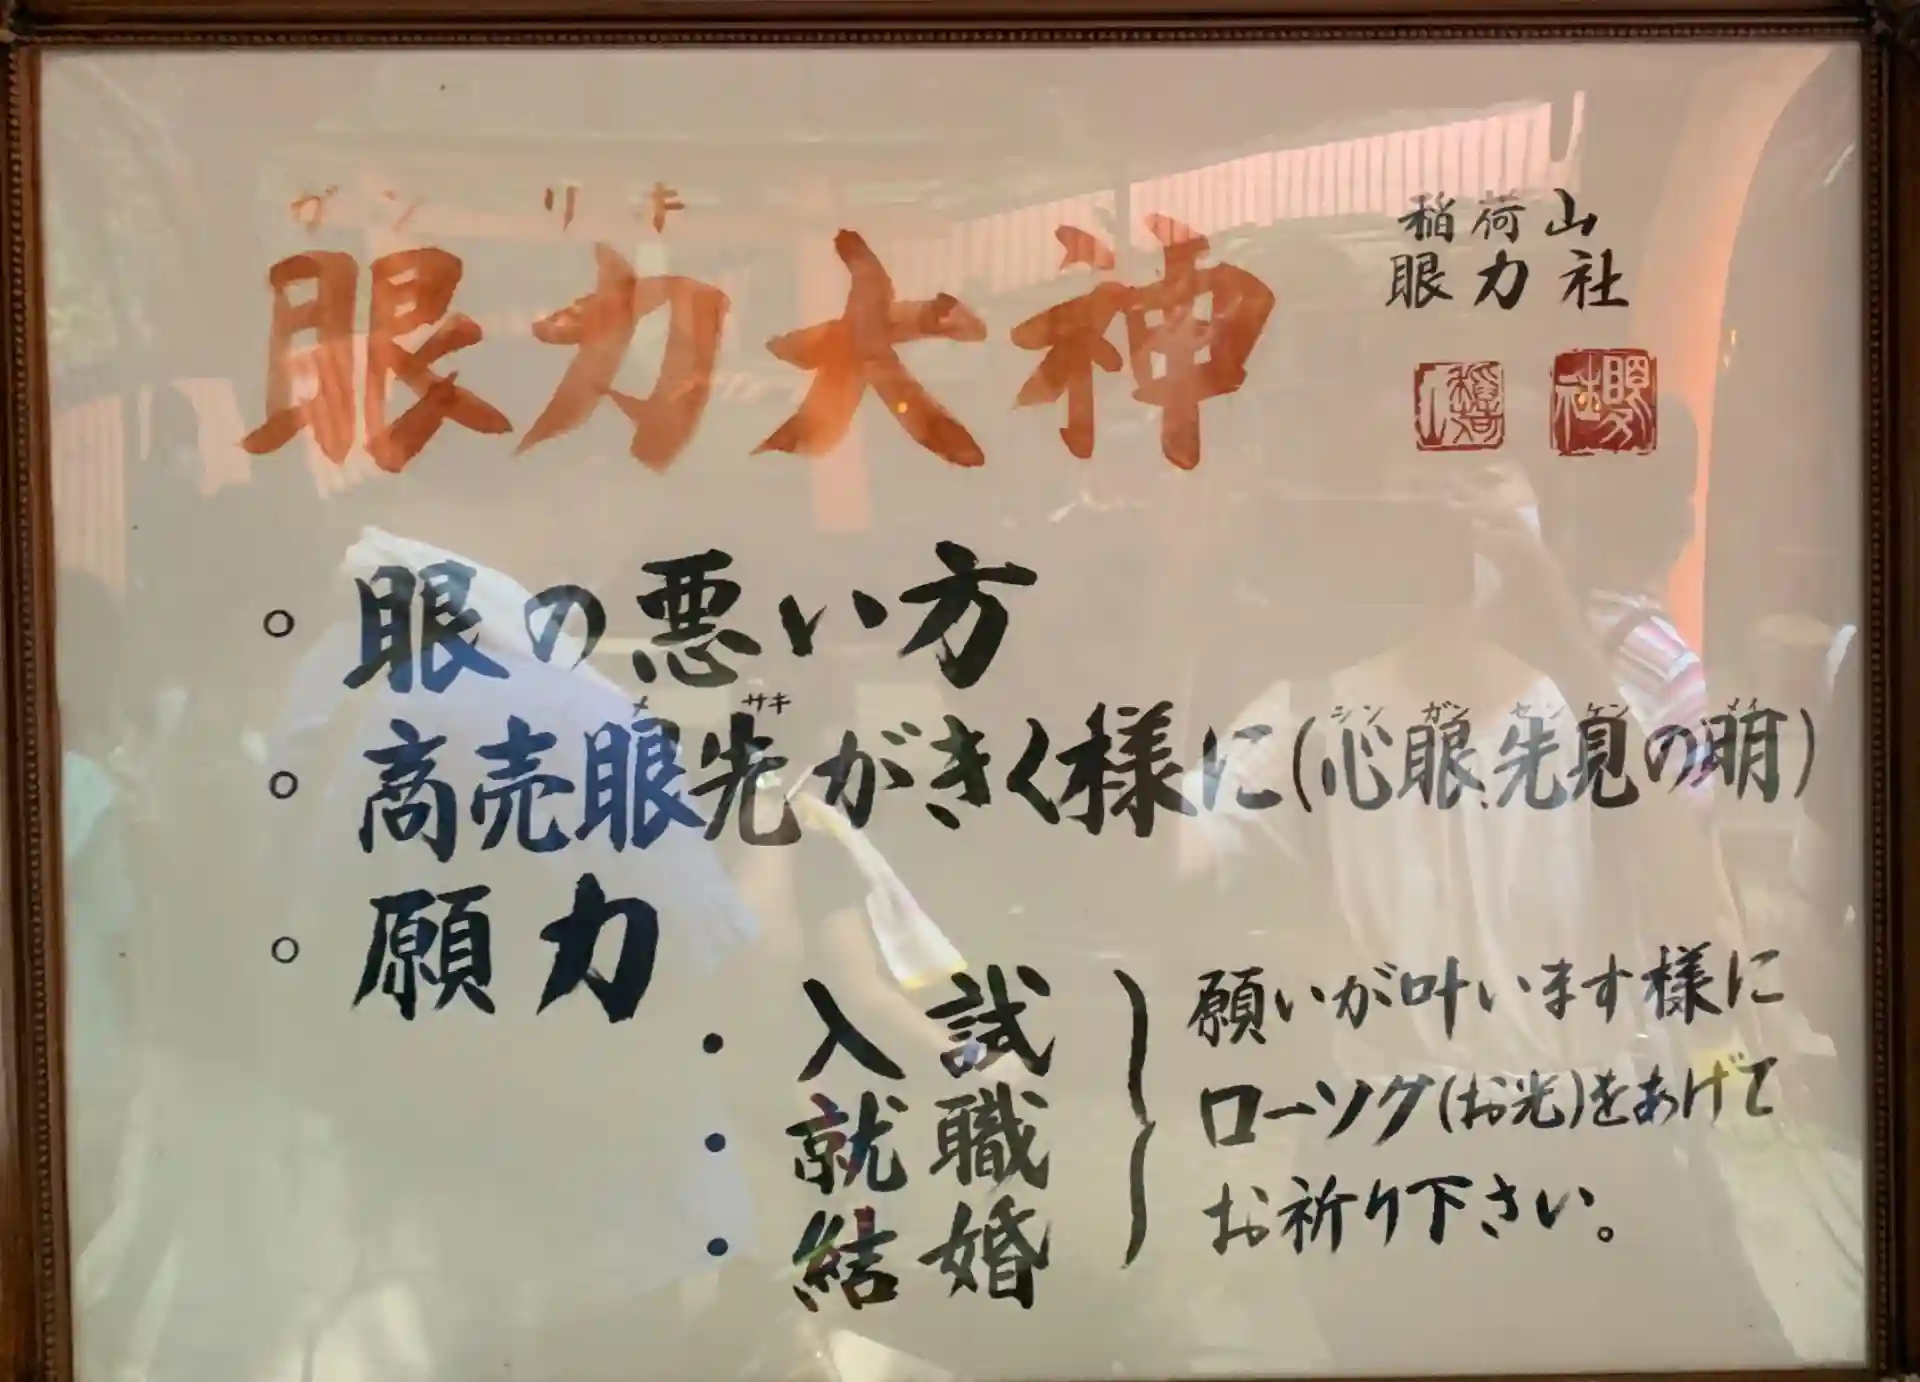 ガンリキ
眼力大神
稲荷山
眼力社
○ 眼の悪い方
メサキ
シンガンセンケンメイ
○ 商売眼先がきく様に(心眼、先見の明)
○ 願力
・入試
・就職
・結婚
願いが叶います様に
ローソク(お光)をあげて
お祈り下さい。